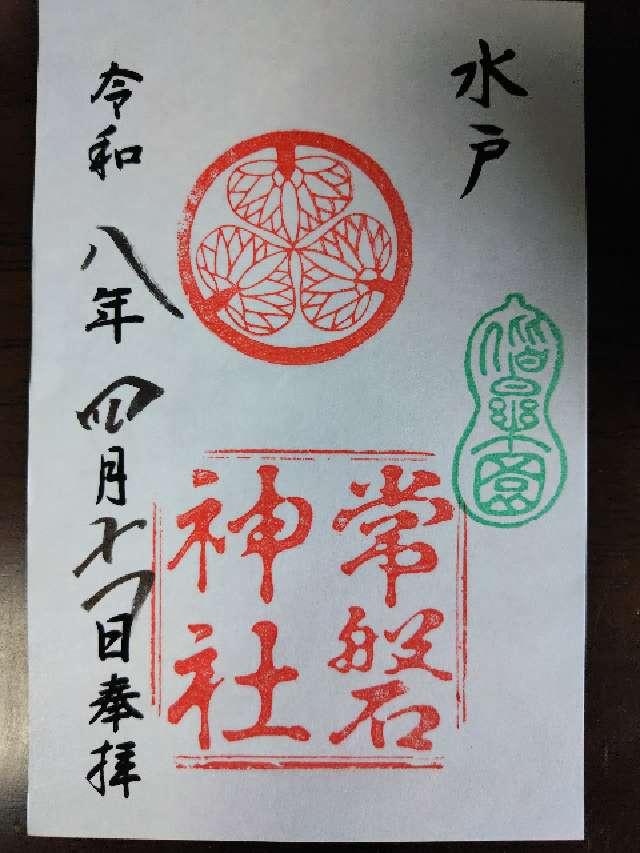 水戸
偕楽園
常磐
神社
令和八年四月十七日奉拝